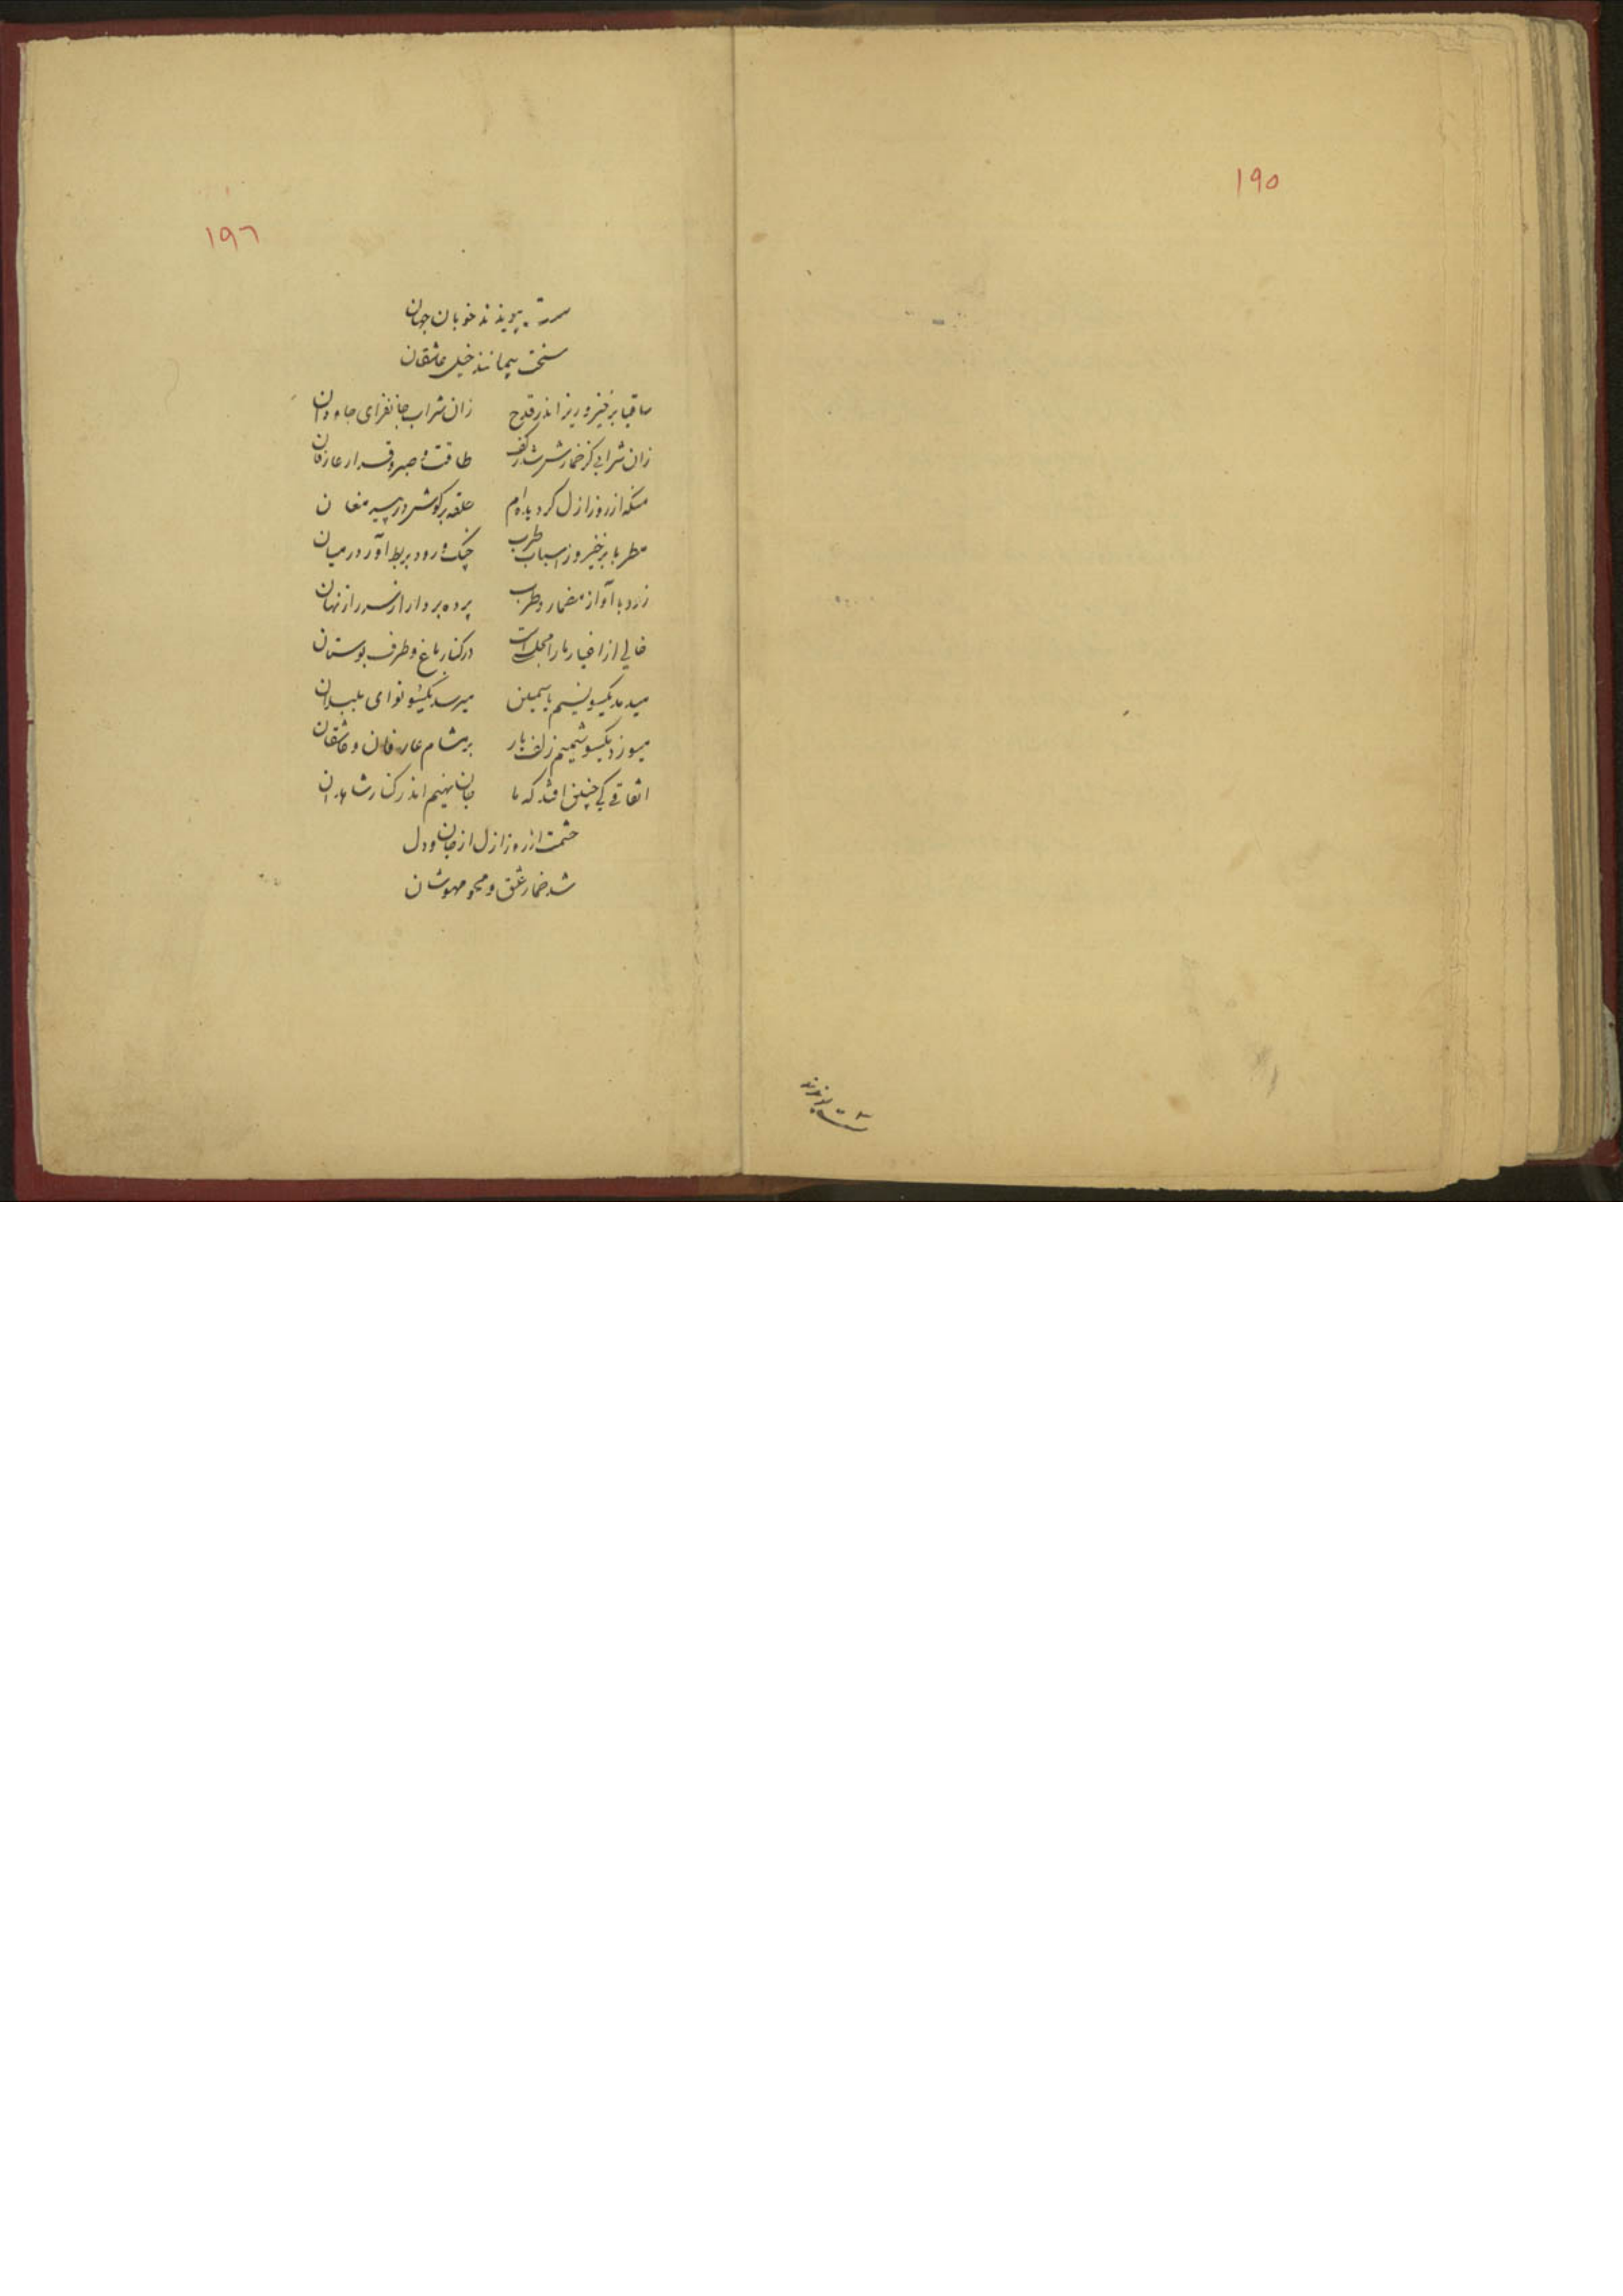 ۱۹۵
۱۹۶
سست پیوندند خوبان جهان
سخت پیمانند خیل عاشقان
ساقیا برخیز و ریز اندر قدح زان شراب جانفزای جاودان
زان شرابی کز خمارش شد ز کف طاقت و صبر و قرار عارفان
منکه از روز ازل کرده‌ام حلقه بر گوش در پیر مغان
مطربا برخیز و ز اسباب طرب چنگ و رود و بربط آور در میان
پرده بردار از سر راز نهان
خالی از اغیار ما را مجلس است در کنار باغ و طرف بوستان
میدمد یکسو نسیم یاسمین میرسد یکسو نوای بلبلان
میوزد یکسو شمیم زلف یار بر مشام عارفان و عاشقان
اتفاقی کی چنین افتد که ما جان نهیم اندر کنار شاهدان
حشمت از روز ازل از جان و دل
شد خمار عشق و محو مهوشان
سست پیوندند